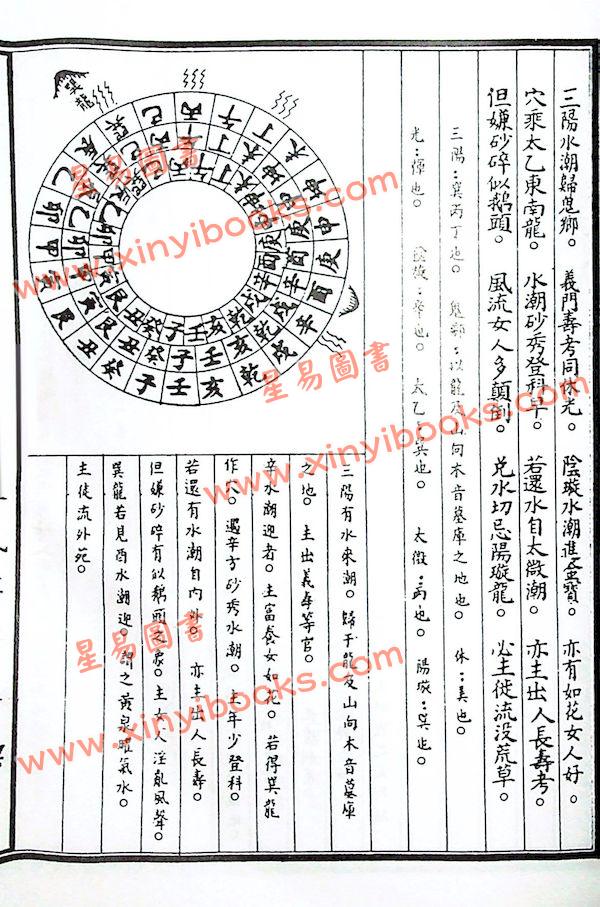 三陽水潮歸鬼鄉。義門壽考同休光。陰璇水潮進蚕寶。亦有如花女人好。
穴乘太乙東南龍。水潮砂秀登科早。若還水自太微潮。亦主出人長壽考。
但嫌砂碎似鵝頭。風流女人多顛倒。兌水切忌陽璇龍。必主徙流没荒草。
三陽：巽丙丁也。鬼鄉：以龍及山向木音墓庫之地也。休：美也。
光：也。陰璇：辛也。太乙：巽也。太微：丙也。陽璇：巽也。
巽龍
巳丙午丁未坤申庚酉辛戌乾亥壬子癸丑艮寅甲卯乙辰巽
三陽有水來潮。歸于龍及山向木音墓庫
之地。主出義等官。
辛水潮迎者。主富養女如花。若得巽龍
作穴。遇辛方砂秀水潮。主年少登科。
若還有水潮自丙外。亦主出人長壽。
但嫌砂碎有似鵝頭之象。主女人淫亂風聲。
巽龍若見酉水潮迎。謂之黃泉曜氣水。
主徙流外死。
星易圖書
www.xinyibooks.com
星易圖書
www.xinyibooks.com
星易圖書
www.xinyibooks.com